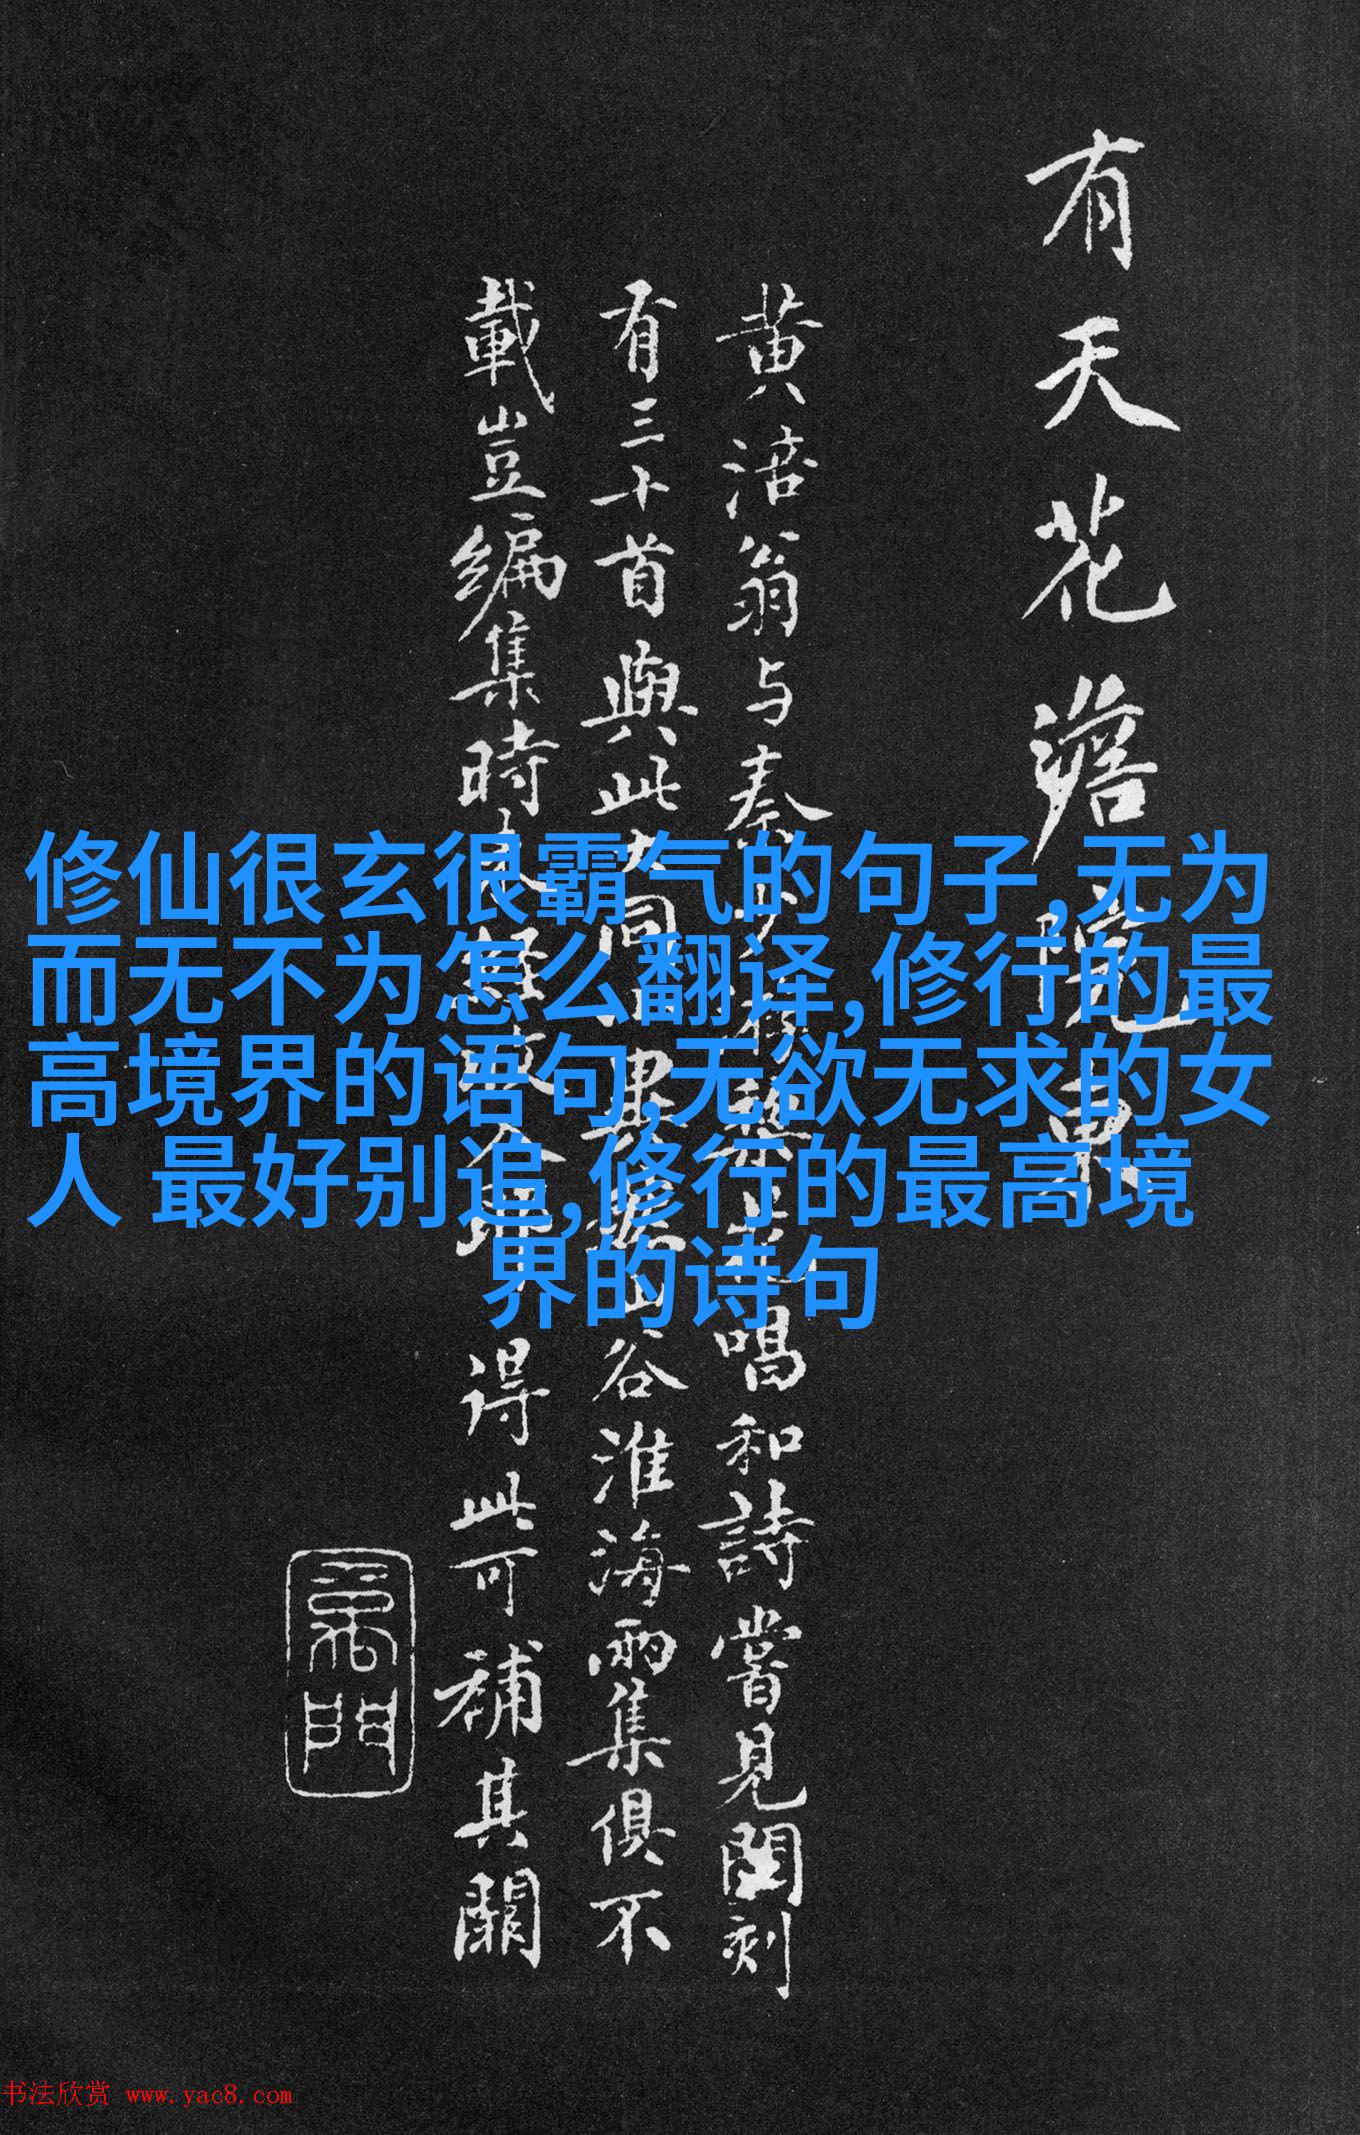 有天花澹𣺌東
黄涪翁与秦少游𬞟花唱和詩嘗見閣刻
有三十首與此大同四庫山谷淮海兩集俱不
載豈編集時未經收入耶得此可補其闕
修仙很玄很霸气的句子,无为
而无不为怎么翻译,修行的最
高境界的语句,无欲无求的女
人 最好别追,修行的最高境
界的诗句
书法欣赏 www.yac8.com